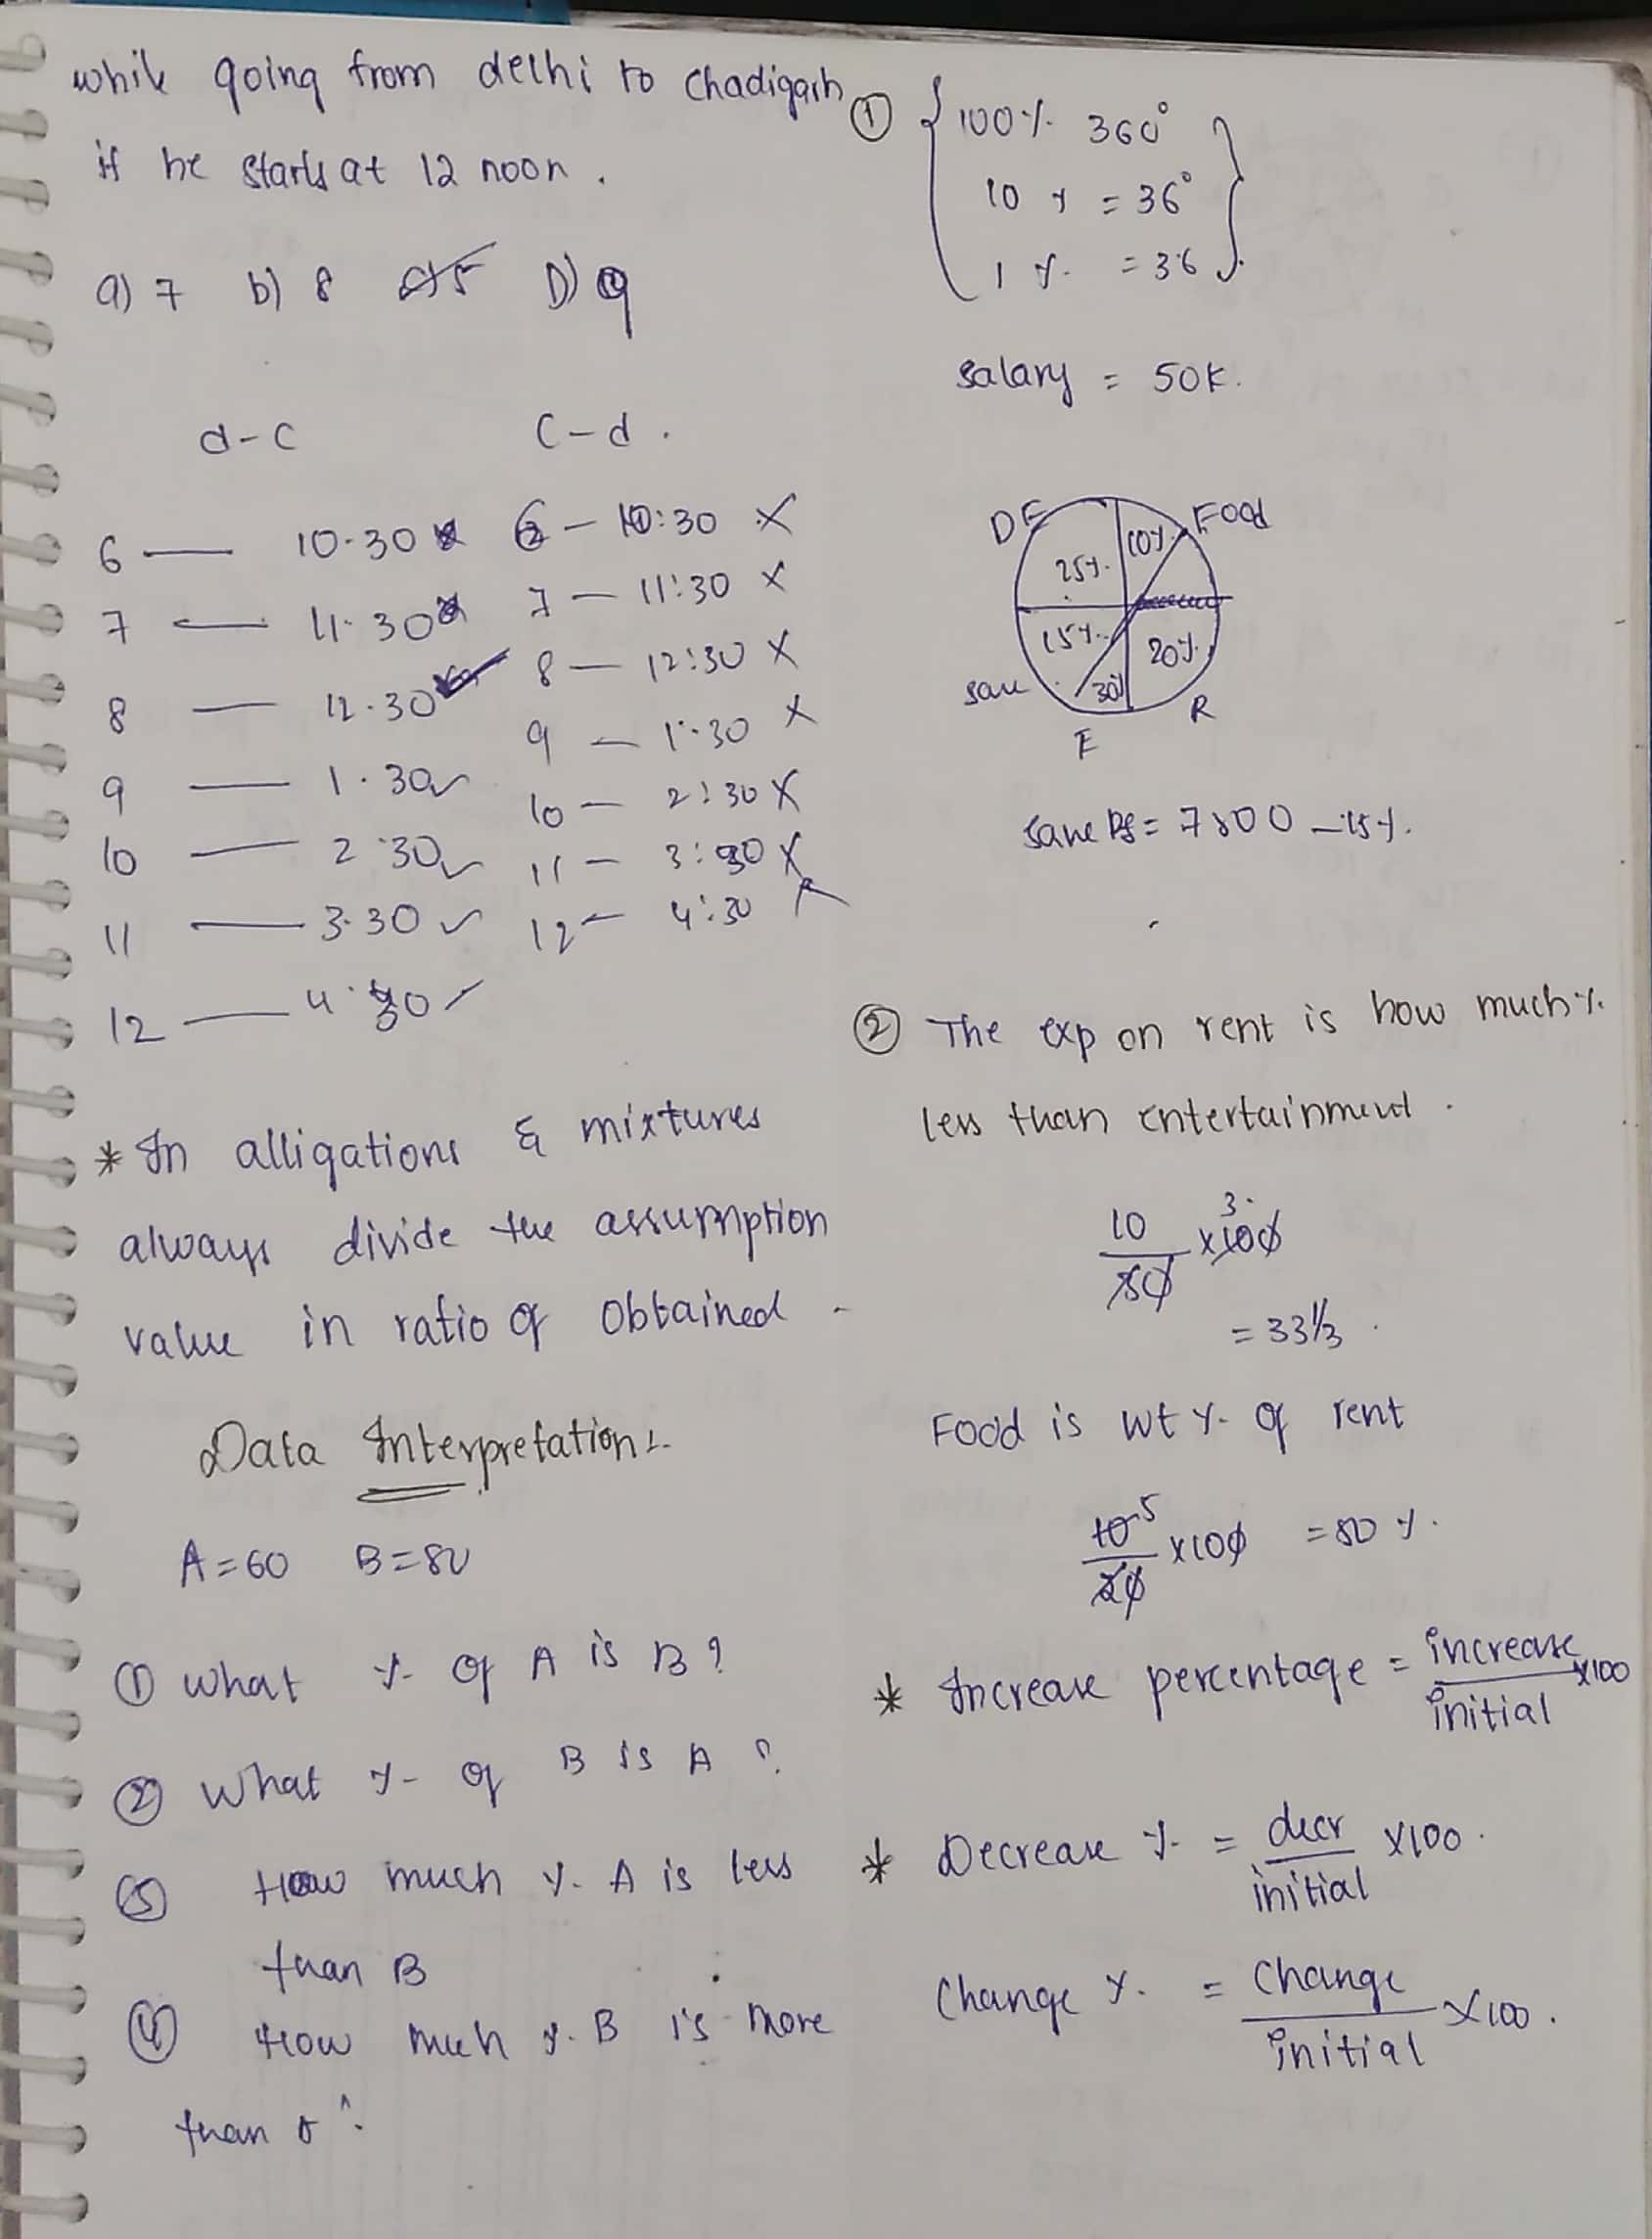 while going from delhi to chadigarh
if he starts at 12 noon.
a) 7 b) 8 D) 9
d-c c-d.
6 — 10.30 6 — 10:30 ×
7 — 11.30 7 — 11:30 ×
8 — 12.30 ✓ 8 — 12:30 ×
9 — 1.30 ✓ 9 — 1:30 ×
10 — 2.30 ✓ 10 — 2:30 ×
11 — 3.30 ✓ 11 — 3:30 ×
12 — 4.30 ✓ 12 — 4:30
* In alligations & mixtures
always divide the assumption
value in ratio of obtained -
Data Interpretation:-
A=60 B=80
① what % of A is B?
② what % of B is A ?
③ How much % A is less
than B
④ How much %. B is more
than
① { 100% 360°
10 % = 36°
1 %. = 3.6 }.
salary = 50K.
DE Food
25%. 10%.
15%. 20%.
save 30% R
E
save Rs = 7500 – 15%.
② The exp on rent is how much %.
less than entertainment.
10/30 ×100 3.
= 33⅓.
Food is wt %. of rent
10/20 ×100 5 = 50 %.
* Increase percentage = increase/initial ×100
* Decrease %. = decr/initial ×100.
Change %. = Change/initial ×100.